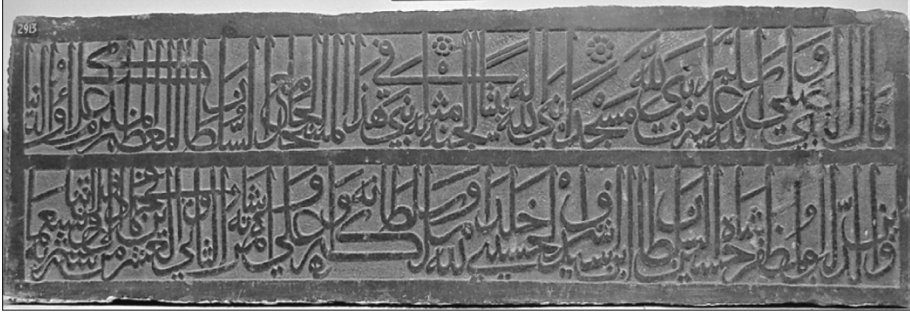 2913
قال النبي صلى الله عليه وسلم من بنى لله مسجدا بنى الله له بيتا مثله في الجنة بنى هذا المسجد الجامع السلطان المعظم المكرم علاء الدنيا
والدين ابو المظفر حسين شاه السلطان ابن سيد اشرف الحسيني خلد الله ملكه وسلطانه واعلى امره وشانه في الثاني العشر من شهر